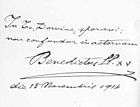 In Te, Domine, speravi:
non confundar in aeternum
Benedictus PP. XV
die 18 Novembris 1914